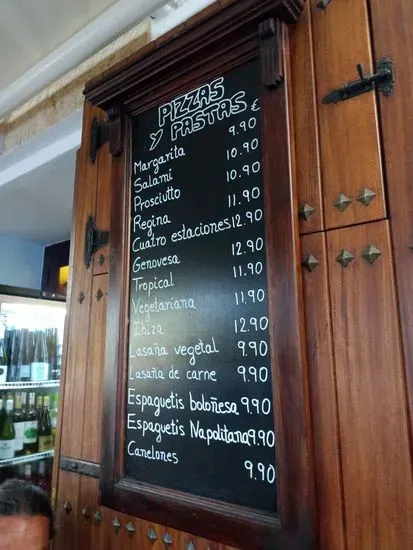 PIZZAS
y PASTAS €
Margarita 9.90
Salami 10.90
Prosciutto 10.90
Regina 11.90
Cuatro estaciones 12.90
Genovesa 12.90
Tropical 11.90
Vegetariana 11.90
Ibiza 12.90
Lasaña vegetal 9.90
Lasaña de carne 9.90
Espaguetis boloñesa 9.90
Espaguetis Napolitana 9.90
Canelones 9.90